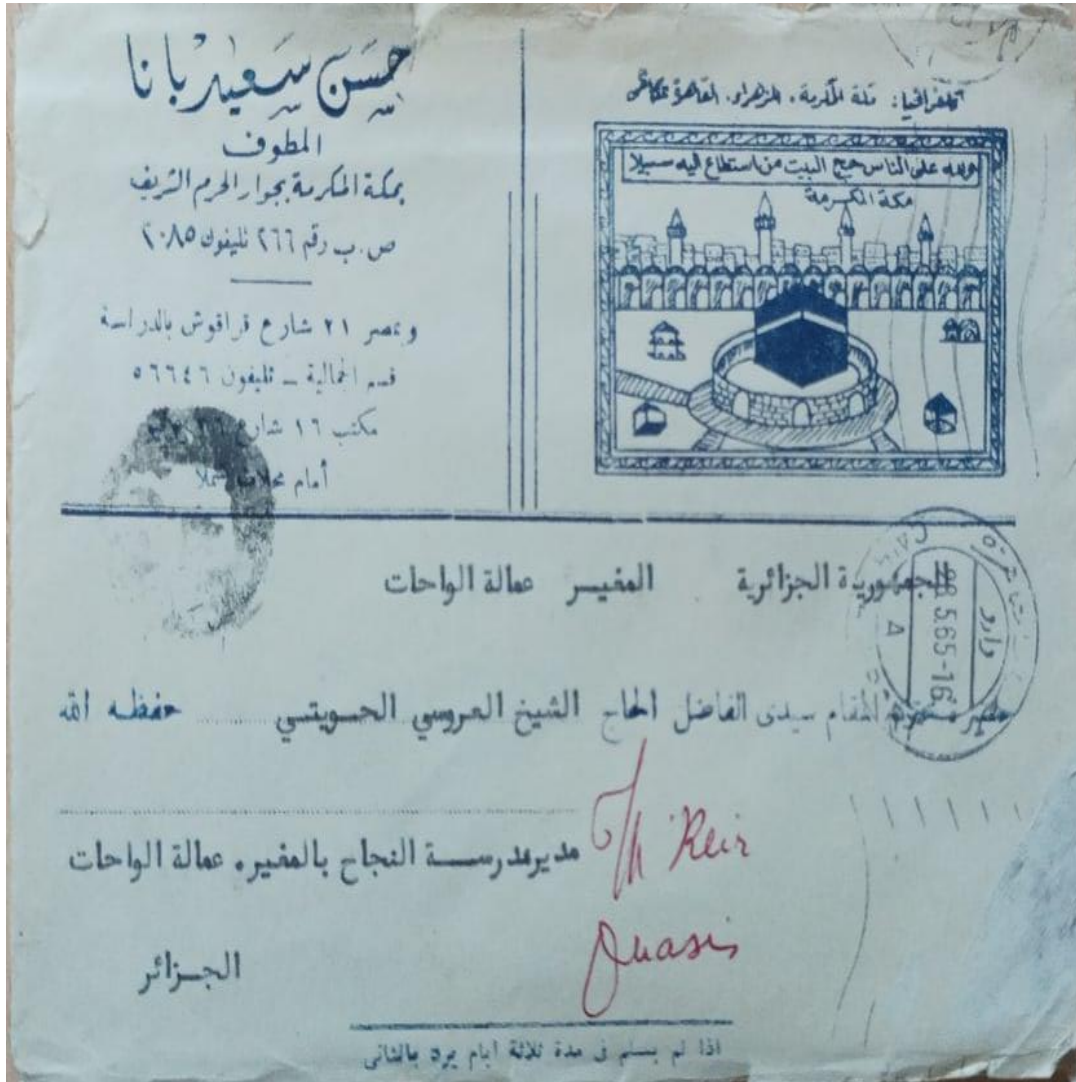 حسن سعيد بانا
المطوف
بمكة المكرمة بجوار الحرم الشريف
ص . ب رقم ٢٦٦ تليفون ٢٠٨٥
وبمصر ٢١ شارع قراقوش بالدراسة
قسم الجمالية ـ تليفون ٥٦٦٤٦
مكتب ١٦ شارع
أمام محلات
تلغرافيا:
الزهراء، القاهرة
ولله على الناس حج البيت من استطاع اليه سبيلا
مكة المكرمة
الجمهورية الجزائرية المغيـر عمالة الواحات
وارد
28.5.65-16
A
حضرة محترم المقام سيدى الفاضل الحاج الشيخ العروسي الحـويتـي حفظـه الله
مديرمدرسـة النجاح بالمغير. عمالة الواحات
M'Reir
Ouasis
الجـزائر
اذا لم يسلم فى مدة ثلاثة ايام يرد بالثانى